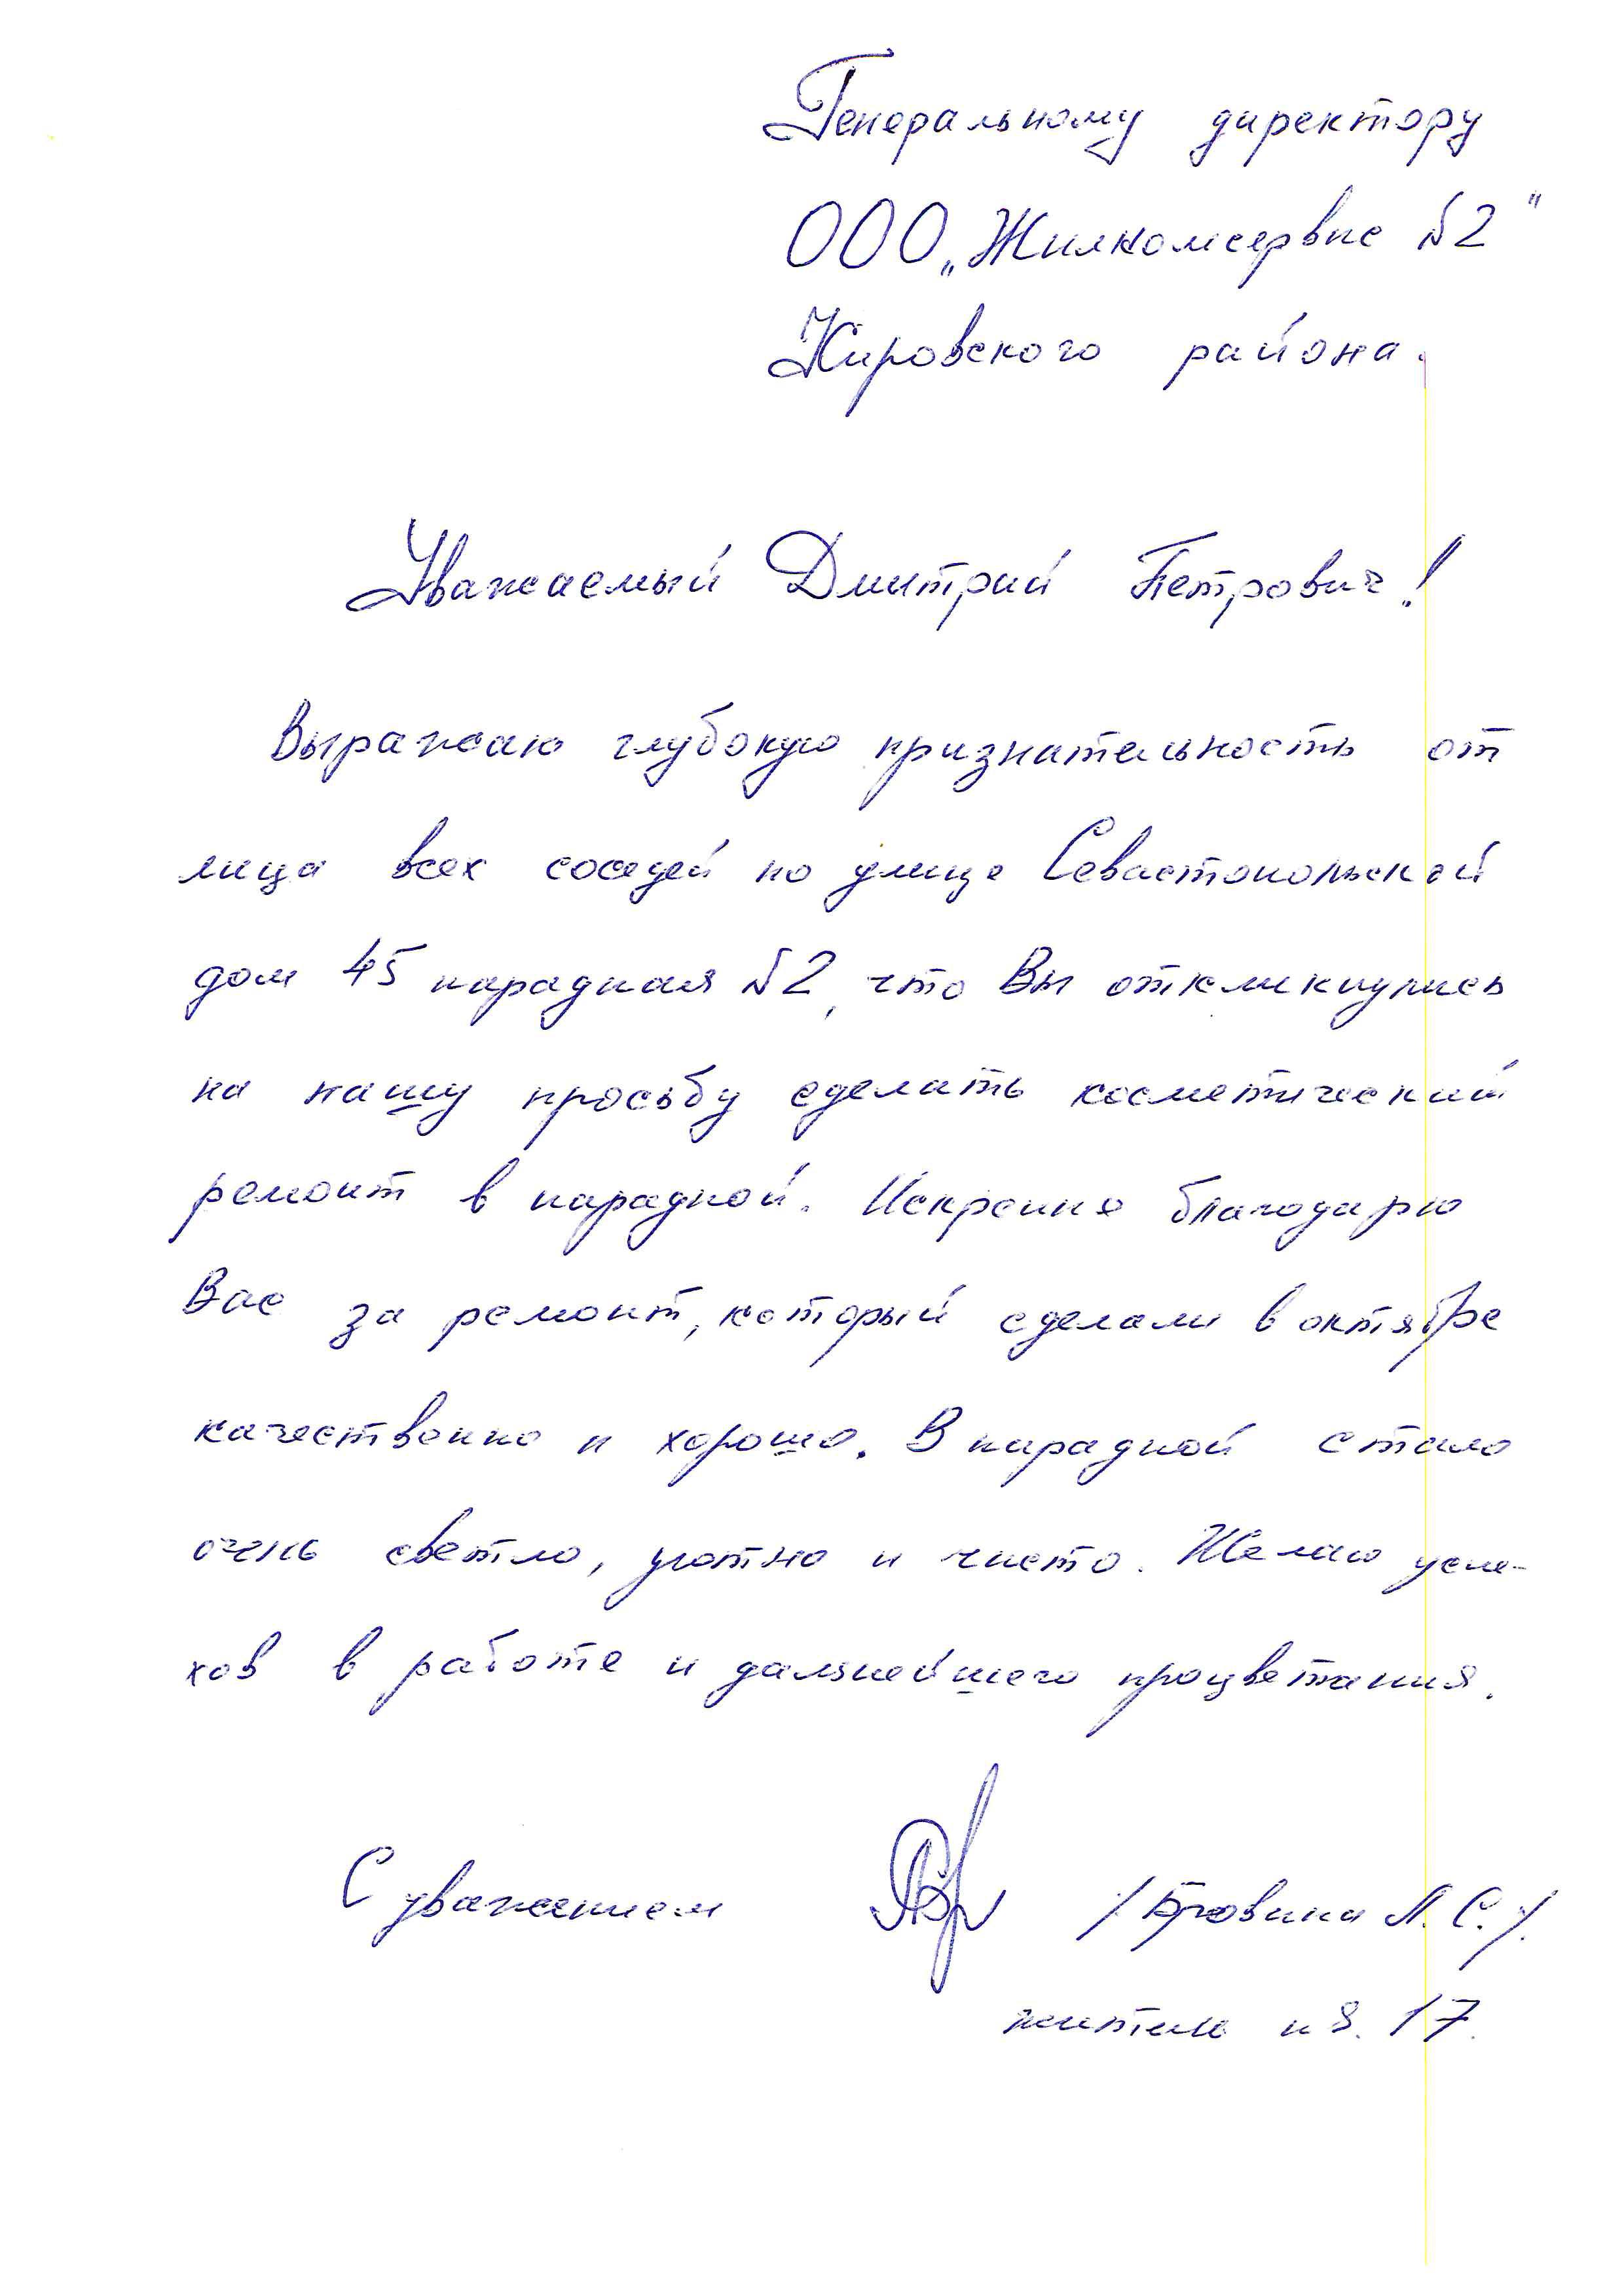 Генеральному директору
ООО „Жилкомсервис №2"
Кировского района.
Уважаемый Дмитрий Петрович!
Выражаю глубокую признательность от
лица всех соседей по улице Севастопольской
дом 45 парадная №2, что Вы откликнулись
на нашу просьбу сделать косметический
ремонт в парадной. Искренне благодарю
Вас за ремонт, который сделали в октябре
качественно и хорошо. В парадной стало
очень светло, уютно и чисто. Желаю успе-
хов в работе и дальнейшего процветания.
С уважением / Бровина Л. С. /.
житель кв. 17.